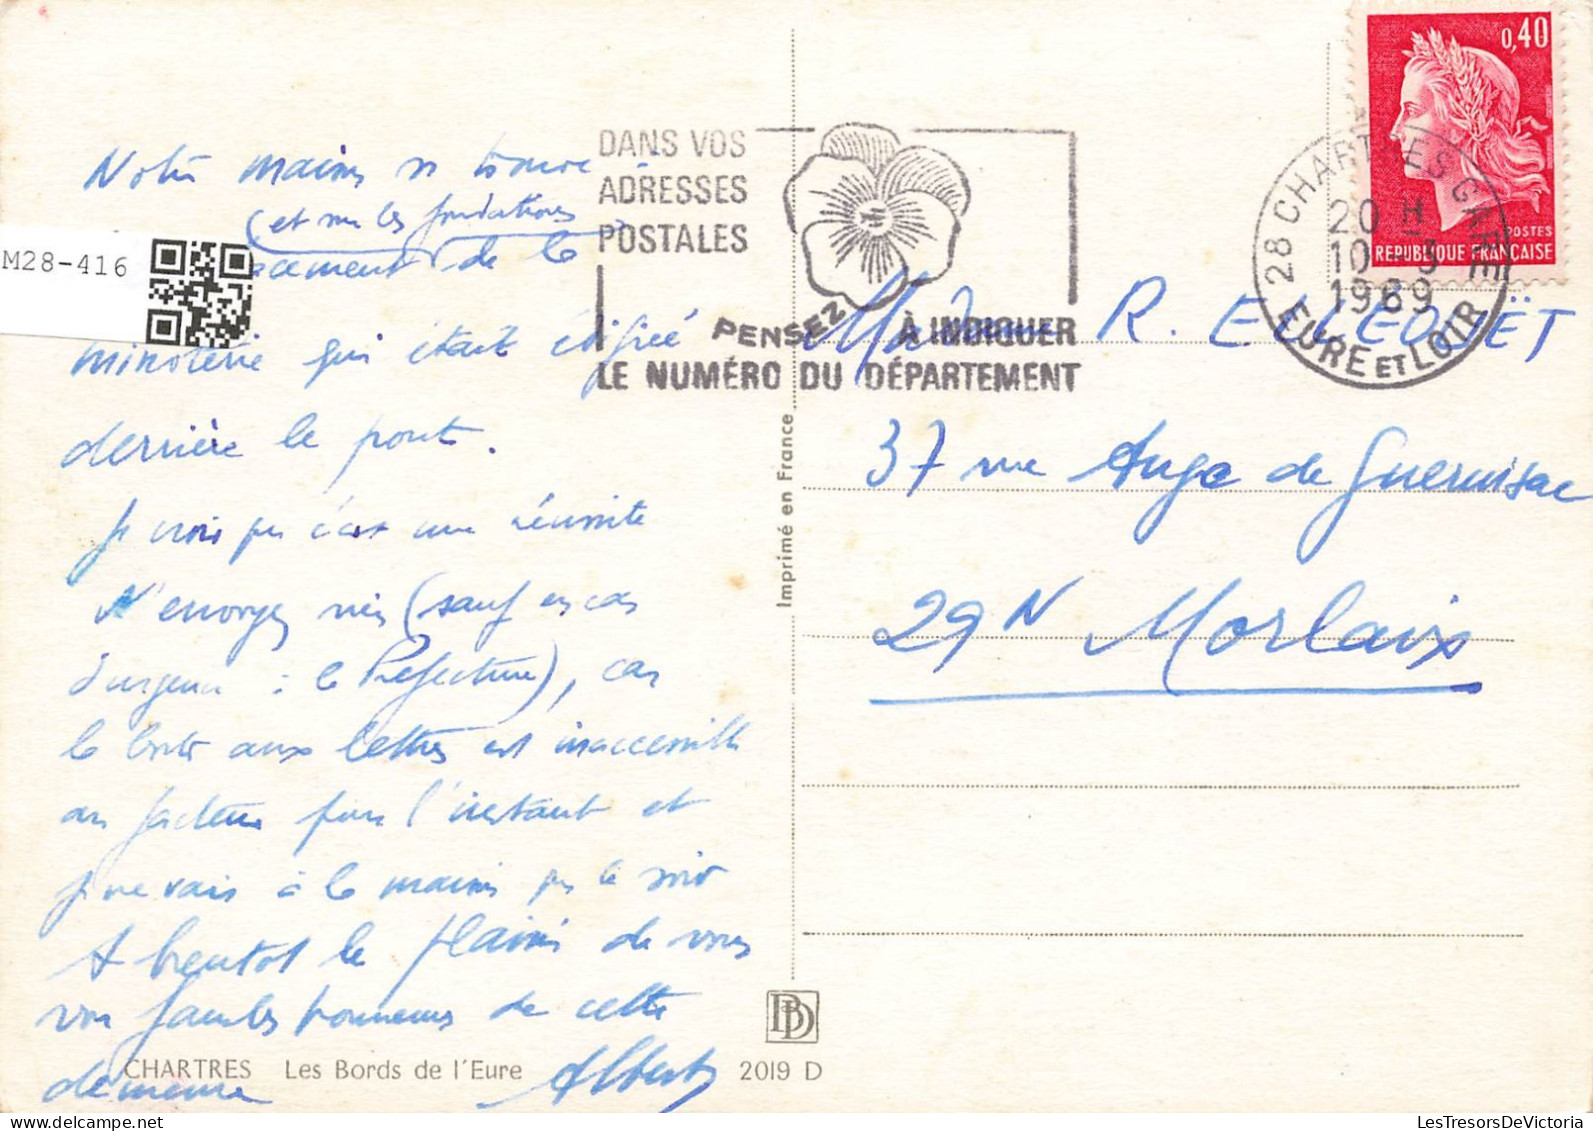 Notre maison se trouve
(et sur les fondations
M28-416
acement de la
minoterie qui était édifiée
derrière le pont.
Je crois que c'est une réussite
N'envoyez rien (sauf en cas
d'urgence : la Préfecture), car
la boîte aux lettres est inaccessible
au facteur pour l'instant et
je ne vais à la maison que le soir
A bientôt le plaisir de vous
voir
de cette
demeure Albert
CHARTRES Les Bords de l'Eure
2019 D
Imprimé en France
DANS VOS
ADRESSES
POSTALES
PENSEZ À INDIQUER
LE NUMÉRO DU DÉPARTEMENT
28 CHARTRES GARE
20 H
10 -3
1969
EURE ET LOIR
0,40
POSTES
REPUBLIQUE FRANÇAISE
Madame R. ELLEOUËT
37 rue Ange de Guernisac
29N Morlaix
LesTresorsDeVictoria.com